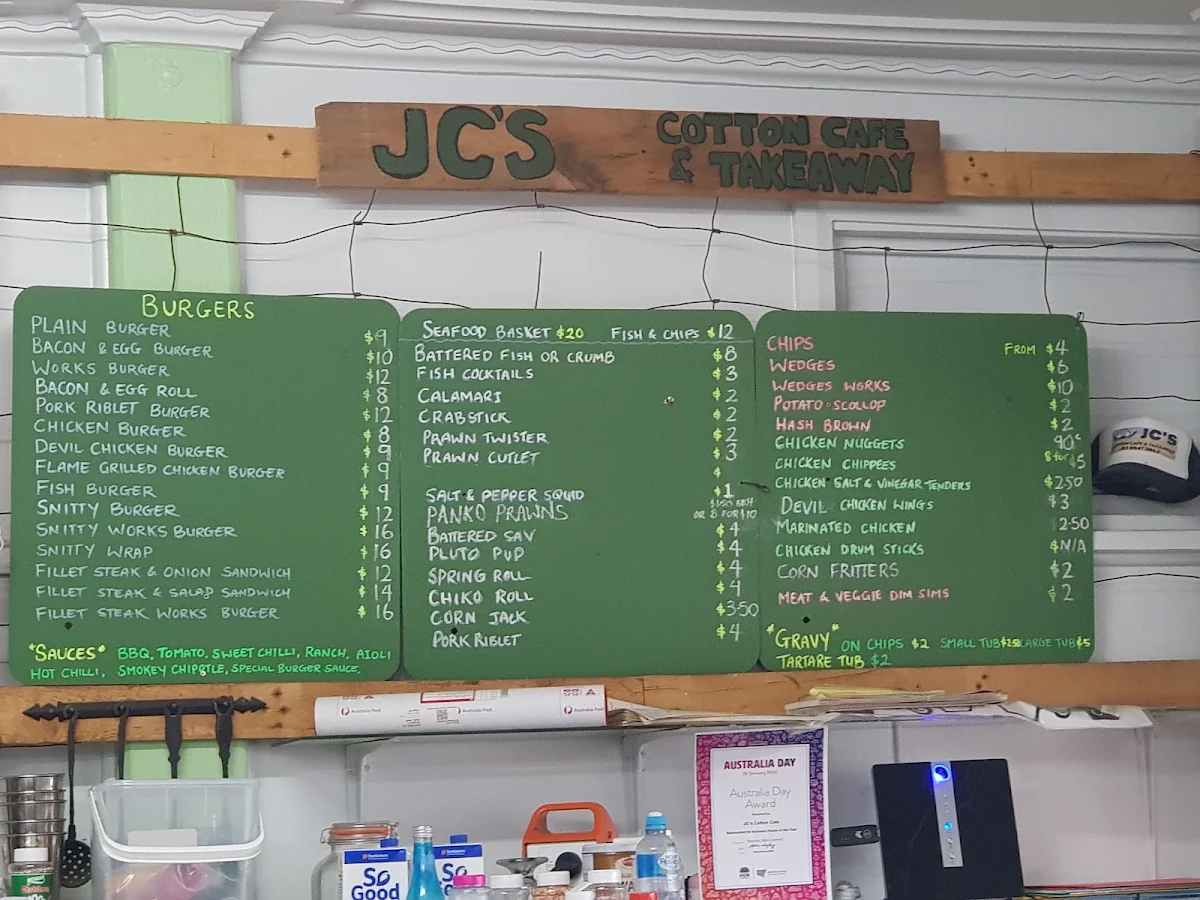 JC'S COTTON CAFE
& TAKEAWAY
BURGERS
PLAIN BURGER $9
BACON & EGG BURGER $10
WORKS BURGER $12
BACON & EGG ROLL $8
PORK RIBLET BURGER $12
CHICKEN BURGER $8
DEVIL CHICKEN BURGER $9
FLAME GRILLED CHICKEN BURGER $9
FISH BURGER $9
SNITTY BURGER $12
SNITTY WORKS BURGER $16
SNITTY WRAP $16
FILLET STEAK & ONION SANDWICH $12
FILLET STEAK & SALAD SANDWICH $14
FILLET STEAK WORKS BURGER $16
*SAUCES* BBQ, TOMATO, SWEET CHILLI, RANCH, AIOLI
HOT CHILLI, SMOKEY CHIPOTLE, SPECIAL BURGER SAUCE.
SEAFOOD BASKET $20 FISH & CHIPS $12
BATTERED FISH OR CRUMB $8
FISH COCKTAILS $3
CALAMARI $2
CRABSTICK $2
PRAWN TWISTER $2
PRAWN CUTLET $3
$
SALT & PEPPER SQUID $1
PANKO PRAWNS $1.50 EACH
OR 8 FOR $10
BATTERED SAV $4
PLUTO PUP $4
SPRING ROLL $4
CHIKO ROLL $4
CORN JACK $3.50
PORK RIBLET $4
CHIPS FROM $4
WEDGES $6
WEDGES WORKS $10
POTATO SCOLLOP $2
HASH BROWN $2
CHICKEN NUGGETS 90c
CHICKEN CHIPPEES 8 for $5
CHICKEN SALT & VINEGAR TENDERS $2.50
DEVIL CHICKEN WINGS $3
MARINATED CHICKEN $2.50
CHICKEN DRUM STICKS $N/A
CORN FRITTERS $2
MEAT & VEGGIE DIM SIMS $2
*GRAVY* ON CHIPS $2 SMALL TUB $2.50 LARGE TUB $5
TARTARE TUB $2
JC'S
Australia Post
Australia Post
AUSTRALIA DAY
Australia Day
Award
JC's Cotton Cafe
So
Good
So
Good